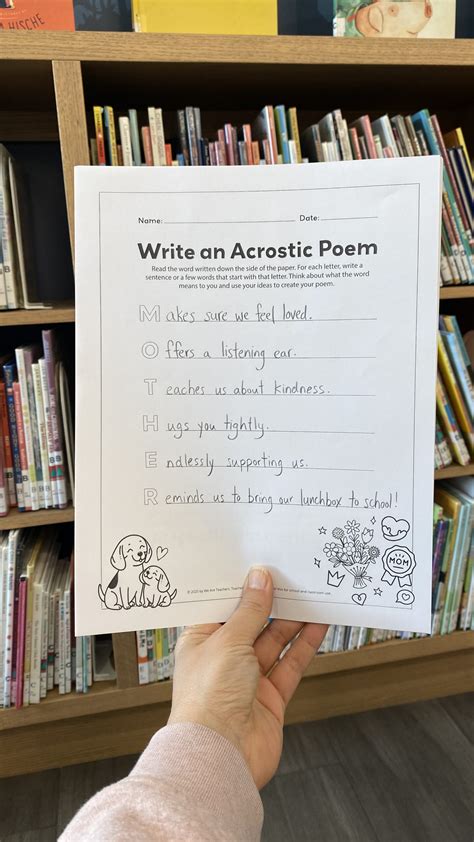 HISCHE
Name:
Date:
Write an Acrostic Poem
Read the word written down the side of the paper. For each letter, write a
sentence or a few words that start with that letter. Think about what the word
means to you and use your ideas to create your poem.
Makes sure we feel loved.
Offers a listening ear.
Teaches us about kindness.
Hugs you tightly.
Endlessly supporting us.
Reminds us to bring our lunchbox to school!
MOM